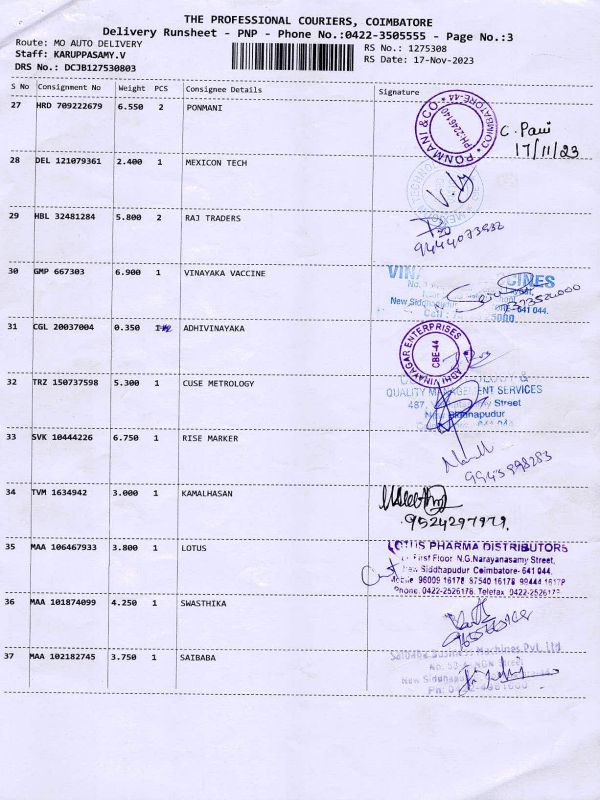 THE PROFESSIONAL COURIERS, COIMBATORE
Delivery Runsheet - PNP - Phone No.:0422-3505555 - Page No.:3
Route: MO AUTO DELIVERY
RS No.: 1275308
Staff: KARUPPASAMY.V
RS Date: 17-Nov-2023
DRS No.: DCJB127530803
S No Consignment No Weight PCS Consignee Details Signature
27 HRD 709222679 6.550 2 PONMANI
PONMANI & CO. COIMBATORE-44
PH:2246140
17/11/23
28 DEL 121079361 2.400 1 MEXICON TECH
29 HBL 32481284 5.800 2 RAJ TRADERS
9444073932
30 GMP 667303 6.900 1 VINAYAKA VACCINE
CINES
New Siddhapudur
641 044.
31 CGL 20037004 0.350 ADHIVINAYAKA
ADHI VINAYAGAR ENTERPRISES
CBE-44
32 TRZ 150737598 5.300 1 CUSE METROLOGY
QUALITY MANAGEMENT SERVICES
487, Street
New Siddhapudur
33 SVK 10444226 6.750 1 RISE MARKER
34 TVM 1634942 3.000 1 KAMALHASAN
9524297979.
35 MAA 106467933 3.800 1 LOTUS
LOTUS PHARMA DISTRIBUTORS
First Floor N.G.Narayanasamy Street,
New Siddhapudur Coimbatore- 641 044.
Mobile 96009 16178 87540 16178 99444 16178
Phone. 0422-2526178. Telefax 0422-2526178
36 MAA 101874099 4.250 1 SWASTHIKA
37 MAA 102182745 3.750 1 SAIBABA
Saibaba Business Machines Pvt. Ltd
Street